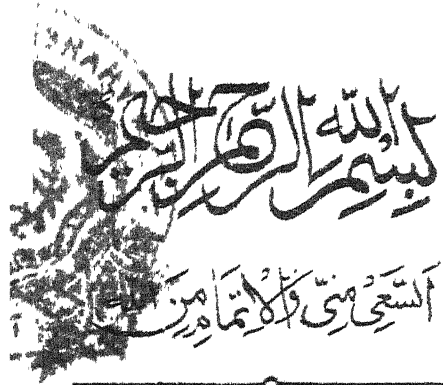 بِسْمِ اللهِ الرَّحْمٰنِ الرَّحِيْمِ
اَلسَّعْيُ مِنِّيْ وَالْاِتْمَامُ مِنَ اللهِ